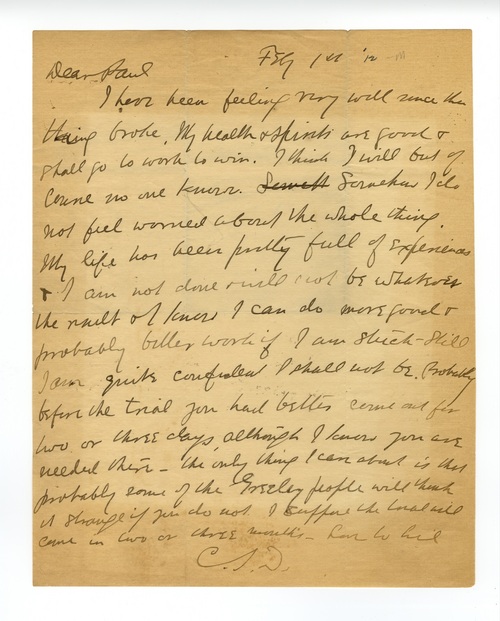 Feby 1st '12
Dear Paul
I have been feeling very well since the
thing broke. My health & spirits are good &
shall go to work to win. I think I will but of
course no one knows. Somehow I do
not feel worried about the whole thing.
My life has been pretty full of experiences
& I am not done & will not be whatever
the result & I know I can do more good &
probably better work if I am stuck - Still
I am quite confident I shall not be. Probably
before the trial you had better come out for
two or three days, although I know you are
needed there - the only thing I care about is that
probably some of the Greeley people will think
it strange if you do not. I suppose the trial will
come in two or three months - Love to Lil
C.S.D.